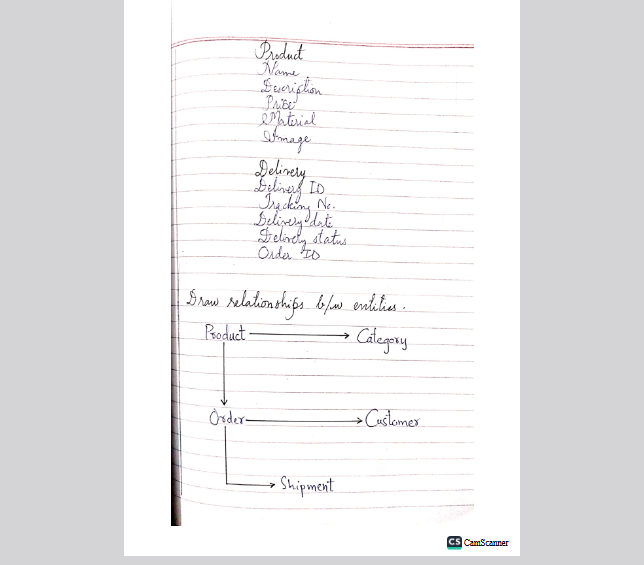 Product
Name
Description
Price
Material
Image
Delivery
Delivery ID
Tracking No.
Delivery date
Delivery status
Order ID
Draw relationships b/w entities.
Product Category
Order Customer
Shipment
CS CamScanner